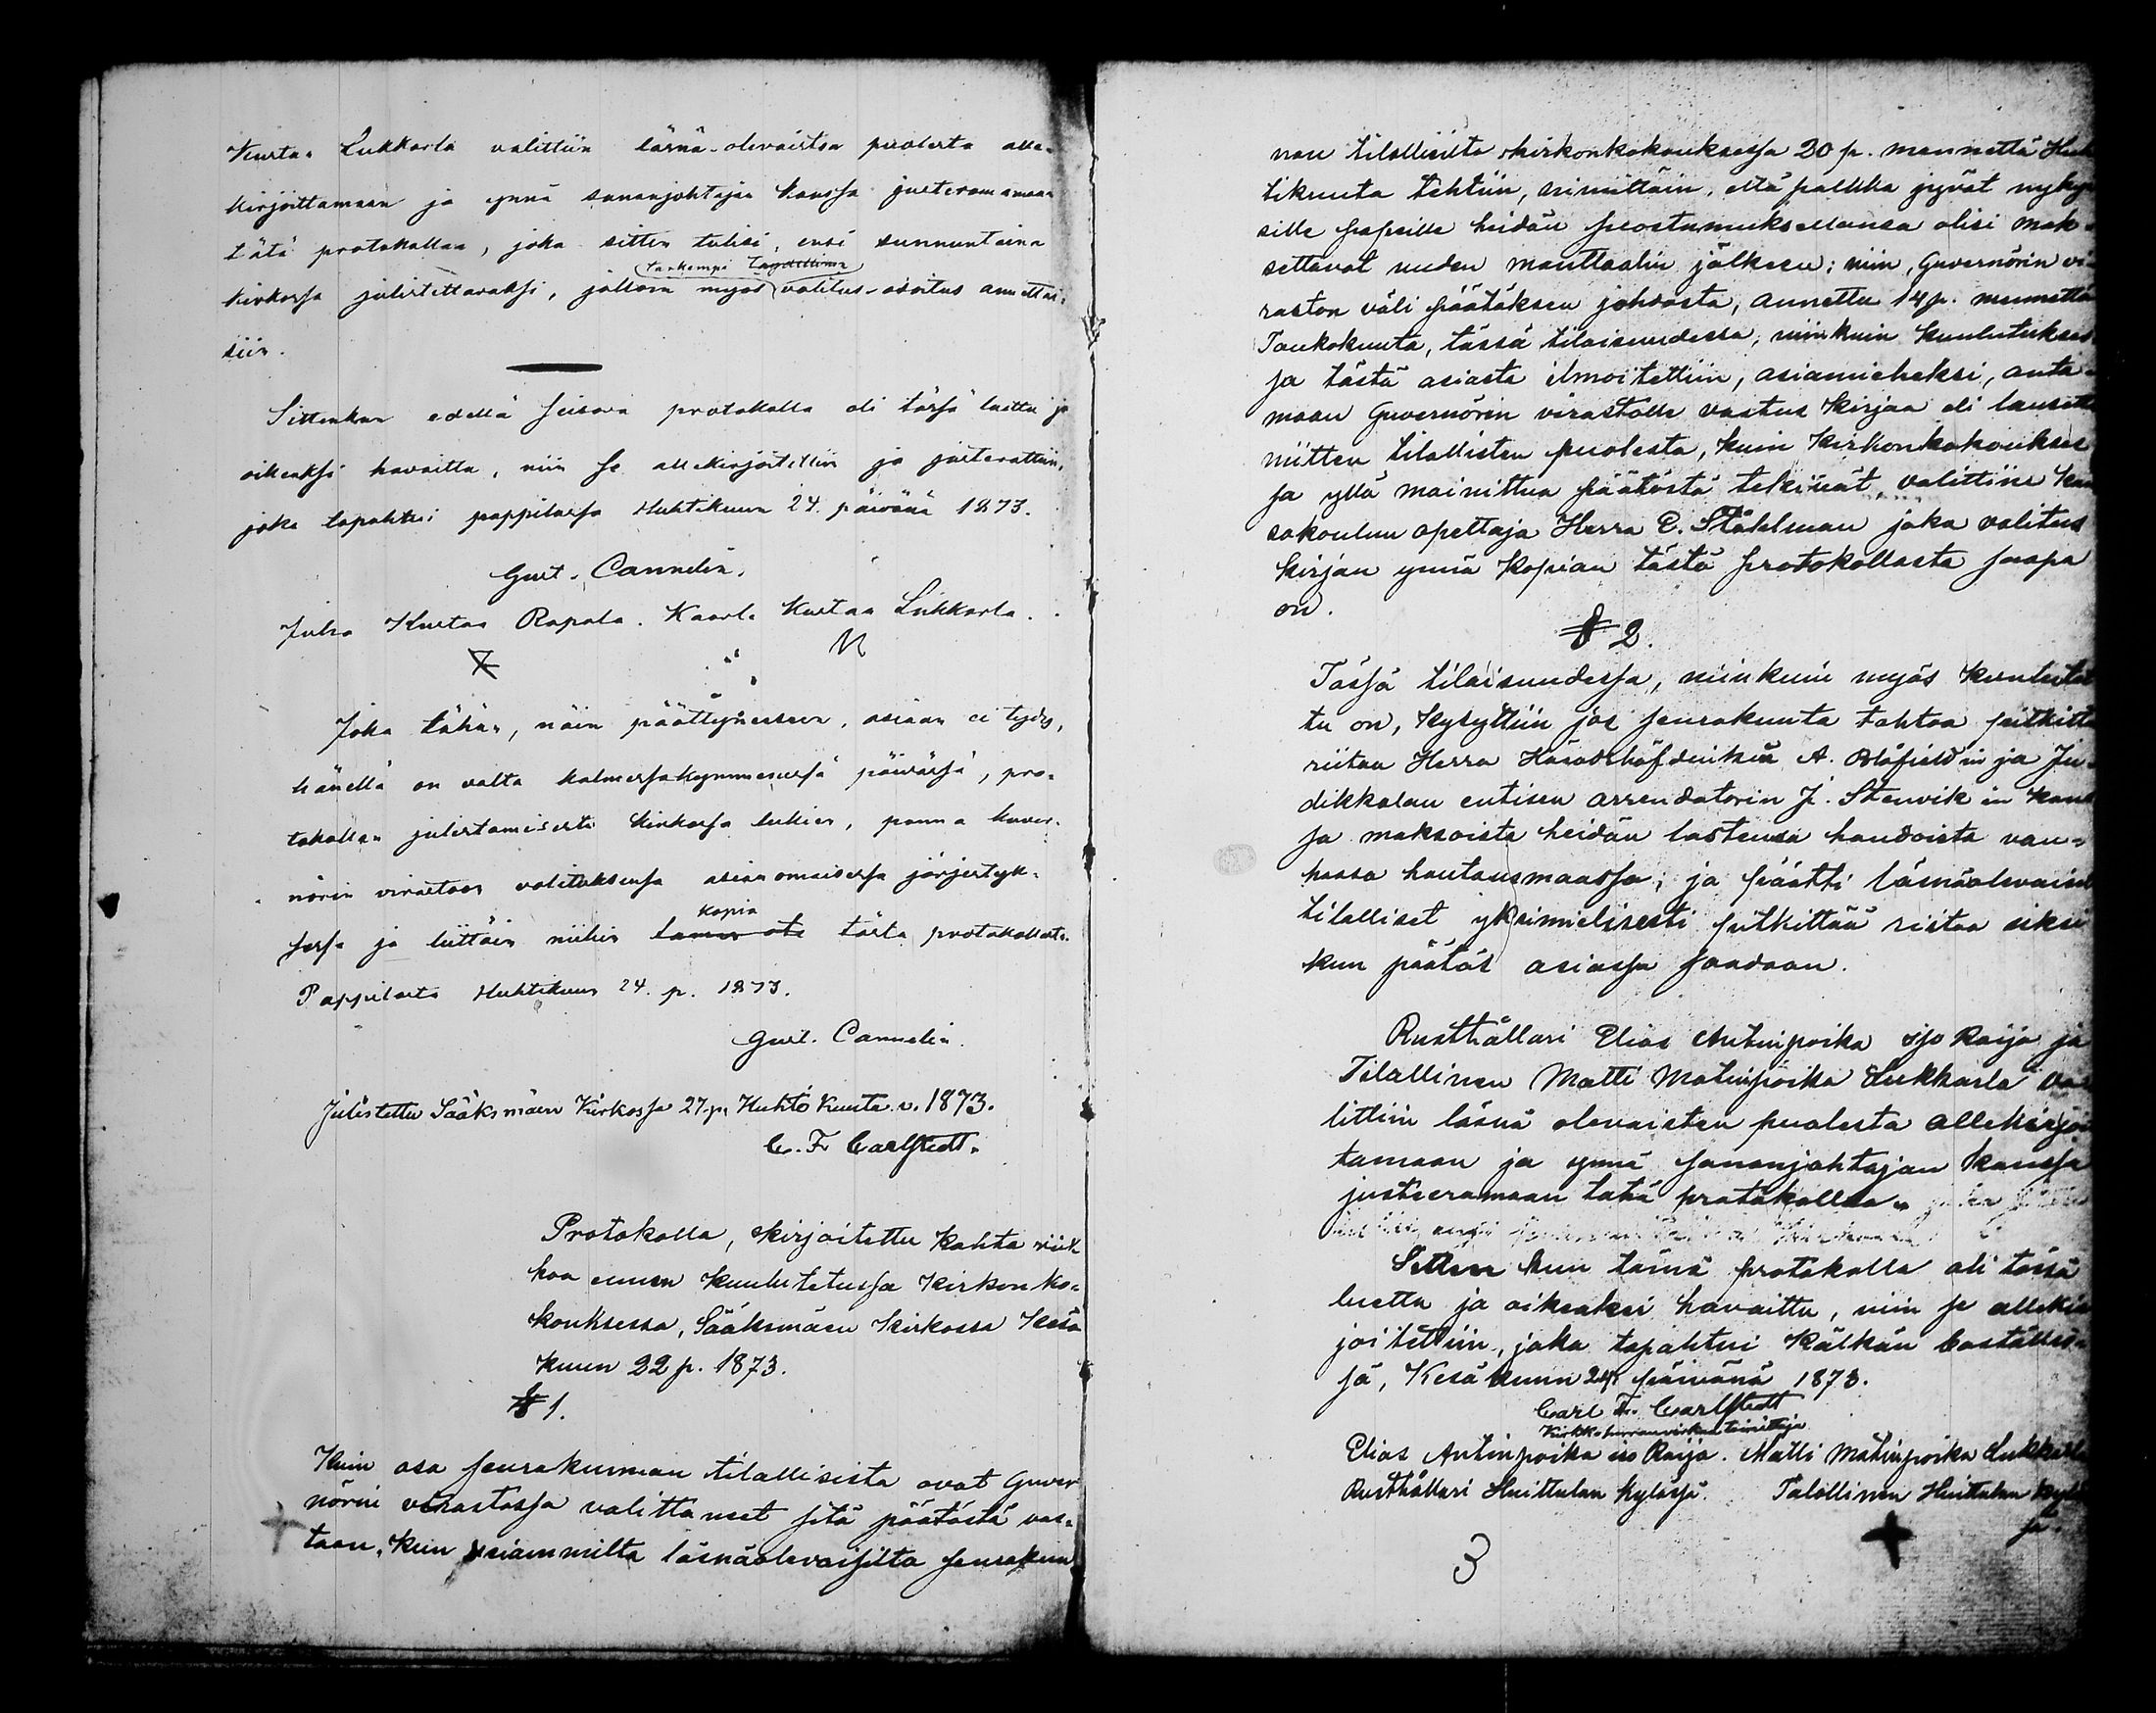 Kustaa Lukkarla valittiin läsnä-olevaisten puolesta alle-
kirjoittamaan ja ynnä sananjohtajan kanssa justeeraamaan
tätä protokollaa, joka sitten tulisi, ensi sunnuntaina
tarkempi täydellinen
kirkossa julistettavaksi, jolloin myös valitus-osoitus annettai-
siin.
Sittenkun edellä seisova protokolla oli tässä luettu ja
oikeaksi havaittu, niin se allekirjoitettiin ja justerattiin,
joka tapahtui pappilassa Huhtikuun 24. päivänä 1873.
Gust. Cannelin.
Juha Kustaa Rapala. Kaarle Kustaa Lukkarla.
Joka tähän, näin päättyneesen, asiaan ei tydy,
hänellä on valta kolmessakymmenessä päivässä, pro-
tokollan julistamisesta kirkossa lukien, panna kuver-
nörin virastoon valituksensa asianomaisessa järjestyk-
kopia
sessä ja liittäin niihin tämän ote tästä protokollasta.
Pappilasta Huhtikuun 24. p. 1873.
Gust. Cannelin.
Julistettu Sääksmäen Kirkossa 27. p. Huhtikuuta v. 1873.
C. F. Carlstedt.
Protokolla, kirjoitettu kahta viik
koa ennen kuulutetussa kirkonko-
kouksessa, Sääksmäen kirkossa Kesä
kuun 22 p. 1873.
§ 1.
Kuin osa seurakunnan tilallisista ovat Guver
nörin virastossa valittaneet sitä päätöstä vas-
taan, kuin useammilta läsnäolevaisilta seurakun
nan tilallisilta kirkonkokouksessa 20 p. mennettä Huh
tikuuta tehtiin, nimittäin, että palkka jyvät nyky
sille papeille heidän suostumuksellansa olisi mak-
settavat uuden manttaalin jälkeen; niin, Guvernörin vi-
raston väli päätöksen johdosta, annettu 14 p. mennettä
Toukokuuta, tässä tilaisuudessa, niinkuin kuulutukses
sa tästä asiasta ilmoitettiin, asiamieheksi, anta-
maan Guvernörin virastolle vastus kirjaa eli lausetta
niitten tilallisten puolesta, kuin kirkonkokoukses
sa yllä mainittua päätöstä tekivät, valittiin kan
sakoulun opettaja Herra E. Ståhlman joka valitus
kirjan ynnä kopian tästä protokollasta saapa
on.
§ 2.
Tässä tilaisuudessa, niinkuin myös kuulutet
tu on, kysyttiin jos seurakunta tahtoo pitkittä
riitaa Herra Häradshöfdinkin A. Blåfield in ja Ju-
dikkalan entisen arrendatorin J. Stenvik in kans
sa maksoista heidän lastensa haudoista van-
hassa hautausmaassa; ja päätti läsnäolevaiset
tilalliset yksimielisesti pitkittää riitaa siksi
kun päätös asiassa saadaan.
Rusthållari Elias Antinpoika iso Raija ja
Tilallinen Matti Matinpoika Lukkarla va-
littiin läsnä olevaisten puolesta allekirjoi
tamaan ja ynnä sananjohtajan kanssa
justeeramaan tätä protokollaa
Sitten kun tämä protokolla oli tässä
luettu ja oikeaksi havaittu, niin se allekir
joitettiin, joka tapahtui Kälkän boställis-
sä, Kesäkuun 24 päivänä 1873.
Carl F. Carlstedt
Kirkkoherranviran toimittaja
Elias Antinpoika iso Raija. Matti Matinpoika Lukkarla
Rusthållari Huittulan kylässä. Talollinen Huittulan kyläs
sä.
3